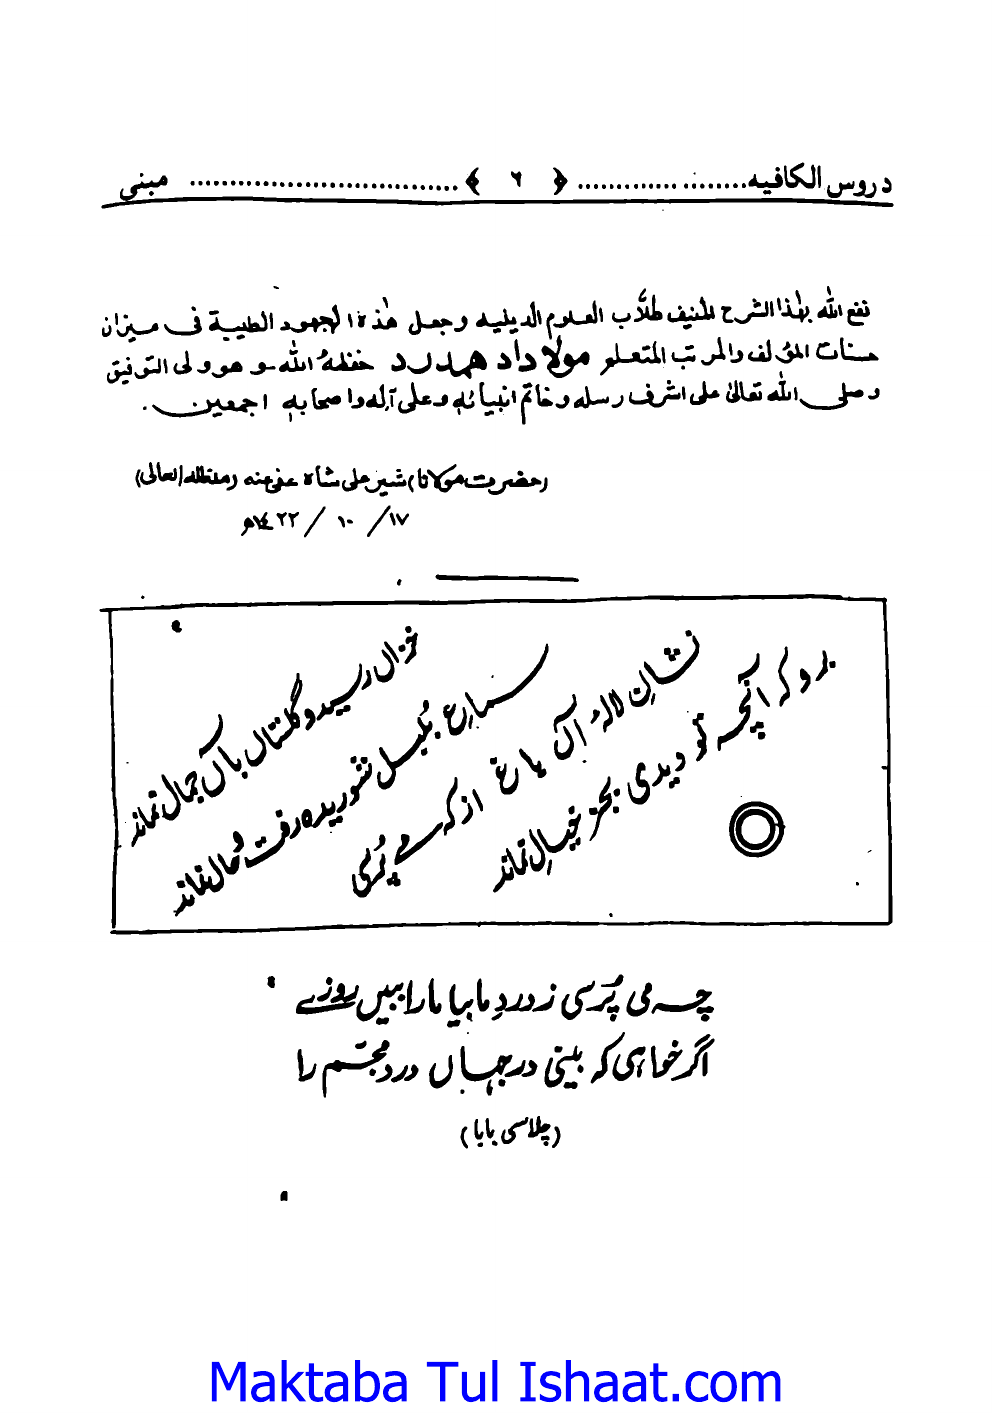 دروس الکافیه ........ ............. ﴿ ٦ ﴾ .................................. مبنی
نفع الله بهٰذا الشرح المنیف طلّاب العلوم الدینیه وجعل هٰذه الجهود الطیبة فی میزان
حسنات المؤلف والمرتب المتعلم مولاداد همدرد حفظهُ الله وهو ولی التوفیق
وصلی الله تعالیٰ علی اشرف رسله وخاتم انبیائه وعلی آله واصحابه اجمعین.
(حضرت مولانا) شیر علی شاه عفی عنه (مدظله العالی)
١٧/ ١٠ / ١٤٢٢ھ
خزاں رسید و گلستاں بآں جمال نماند
سماعِ بُلبلِ شوریده رفت و حال نماند
نشانِ لالۂ این باغ از که می پُرسی
برو که آنچه تو دیدی بجز خیال نماند
چه می پُرسی ز دردِ ما بیا ما را ببیں روزے
اگر خواهی که بینی در جهاں دردِ مجسّم را
(چلاسی بابا)
Maktaba Tul Ishaat.com